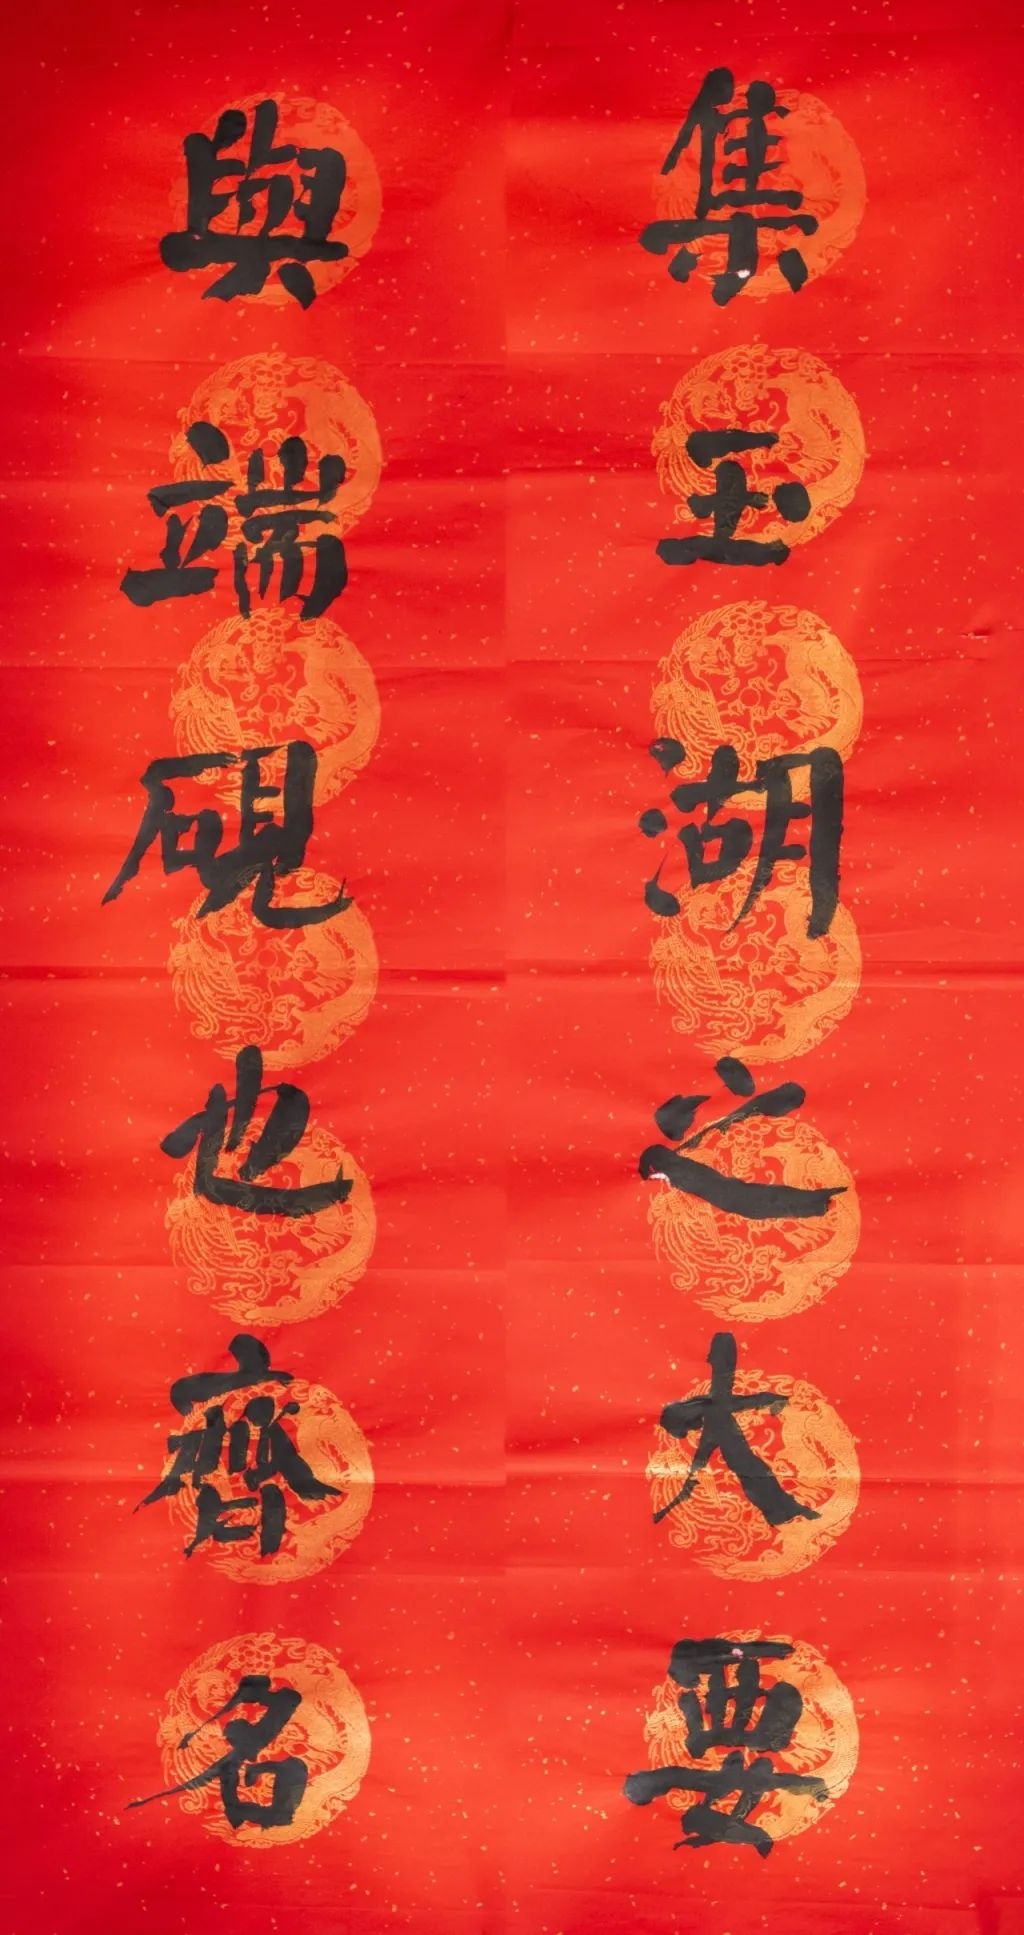 集玉湖之大要
與端硯也齊名